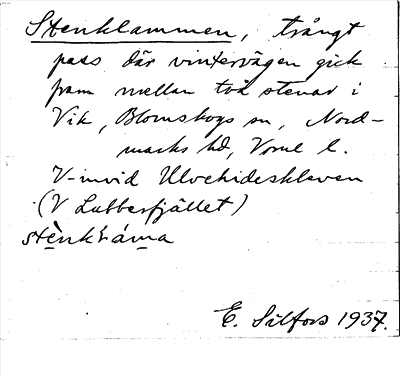 Stenklammen, trångt
pass där vintervägen gick
fram mellan två stenar i
Vik, Blomskogs sn, Nord-
marks hd, Vrml l.
V-invid Ulvehideskleven
(V Lubberfjället)
stènkłáma
E. Sälfors 1937.